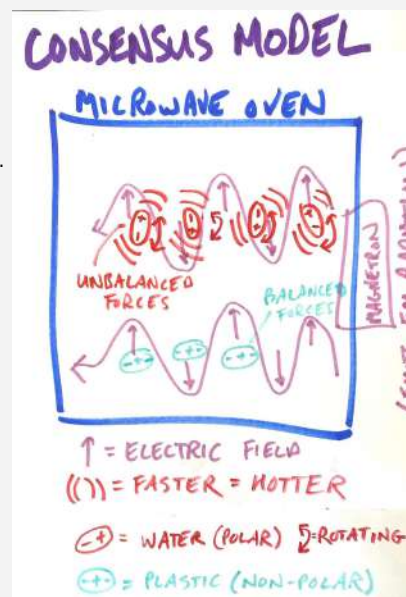 CONSENSUS MODEL
MICROWAVE OVEN
UNBALANCED
FORCES
BALANCED
FORCES
MAGNETRON
↑ = ELECTRIC FIELD
(()) = FASTER = HOTTER
-+ = WATER (POLAR) = ROTATING
-+- = PLASTIC (NON-POLAR)